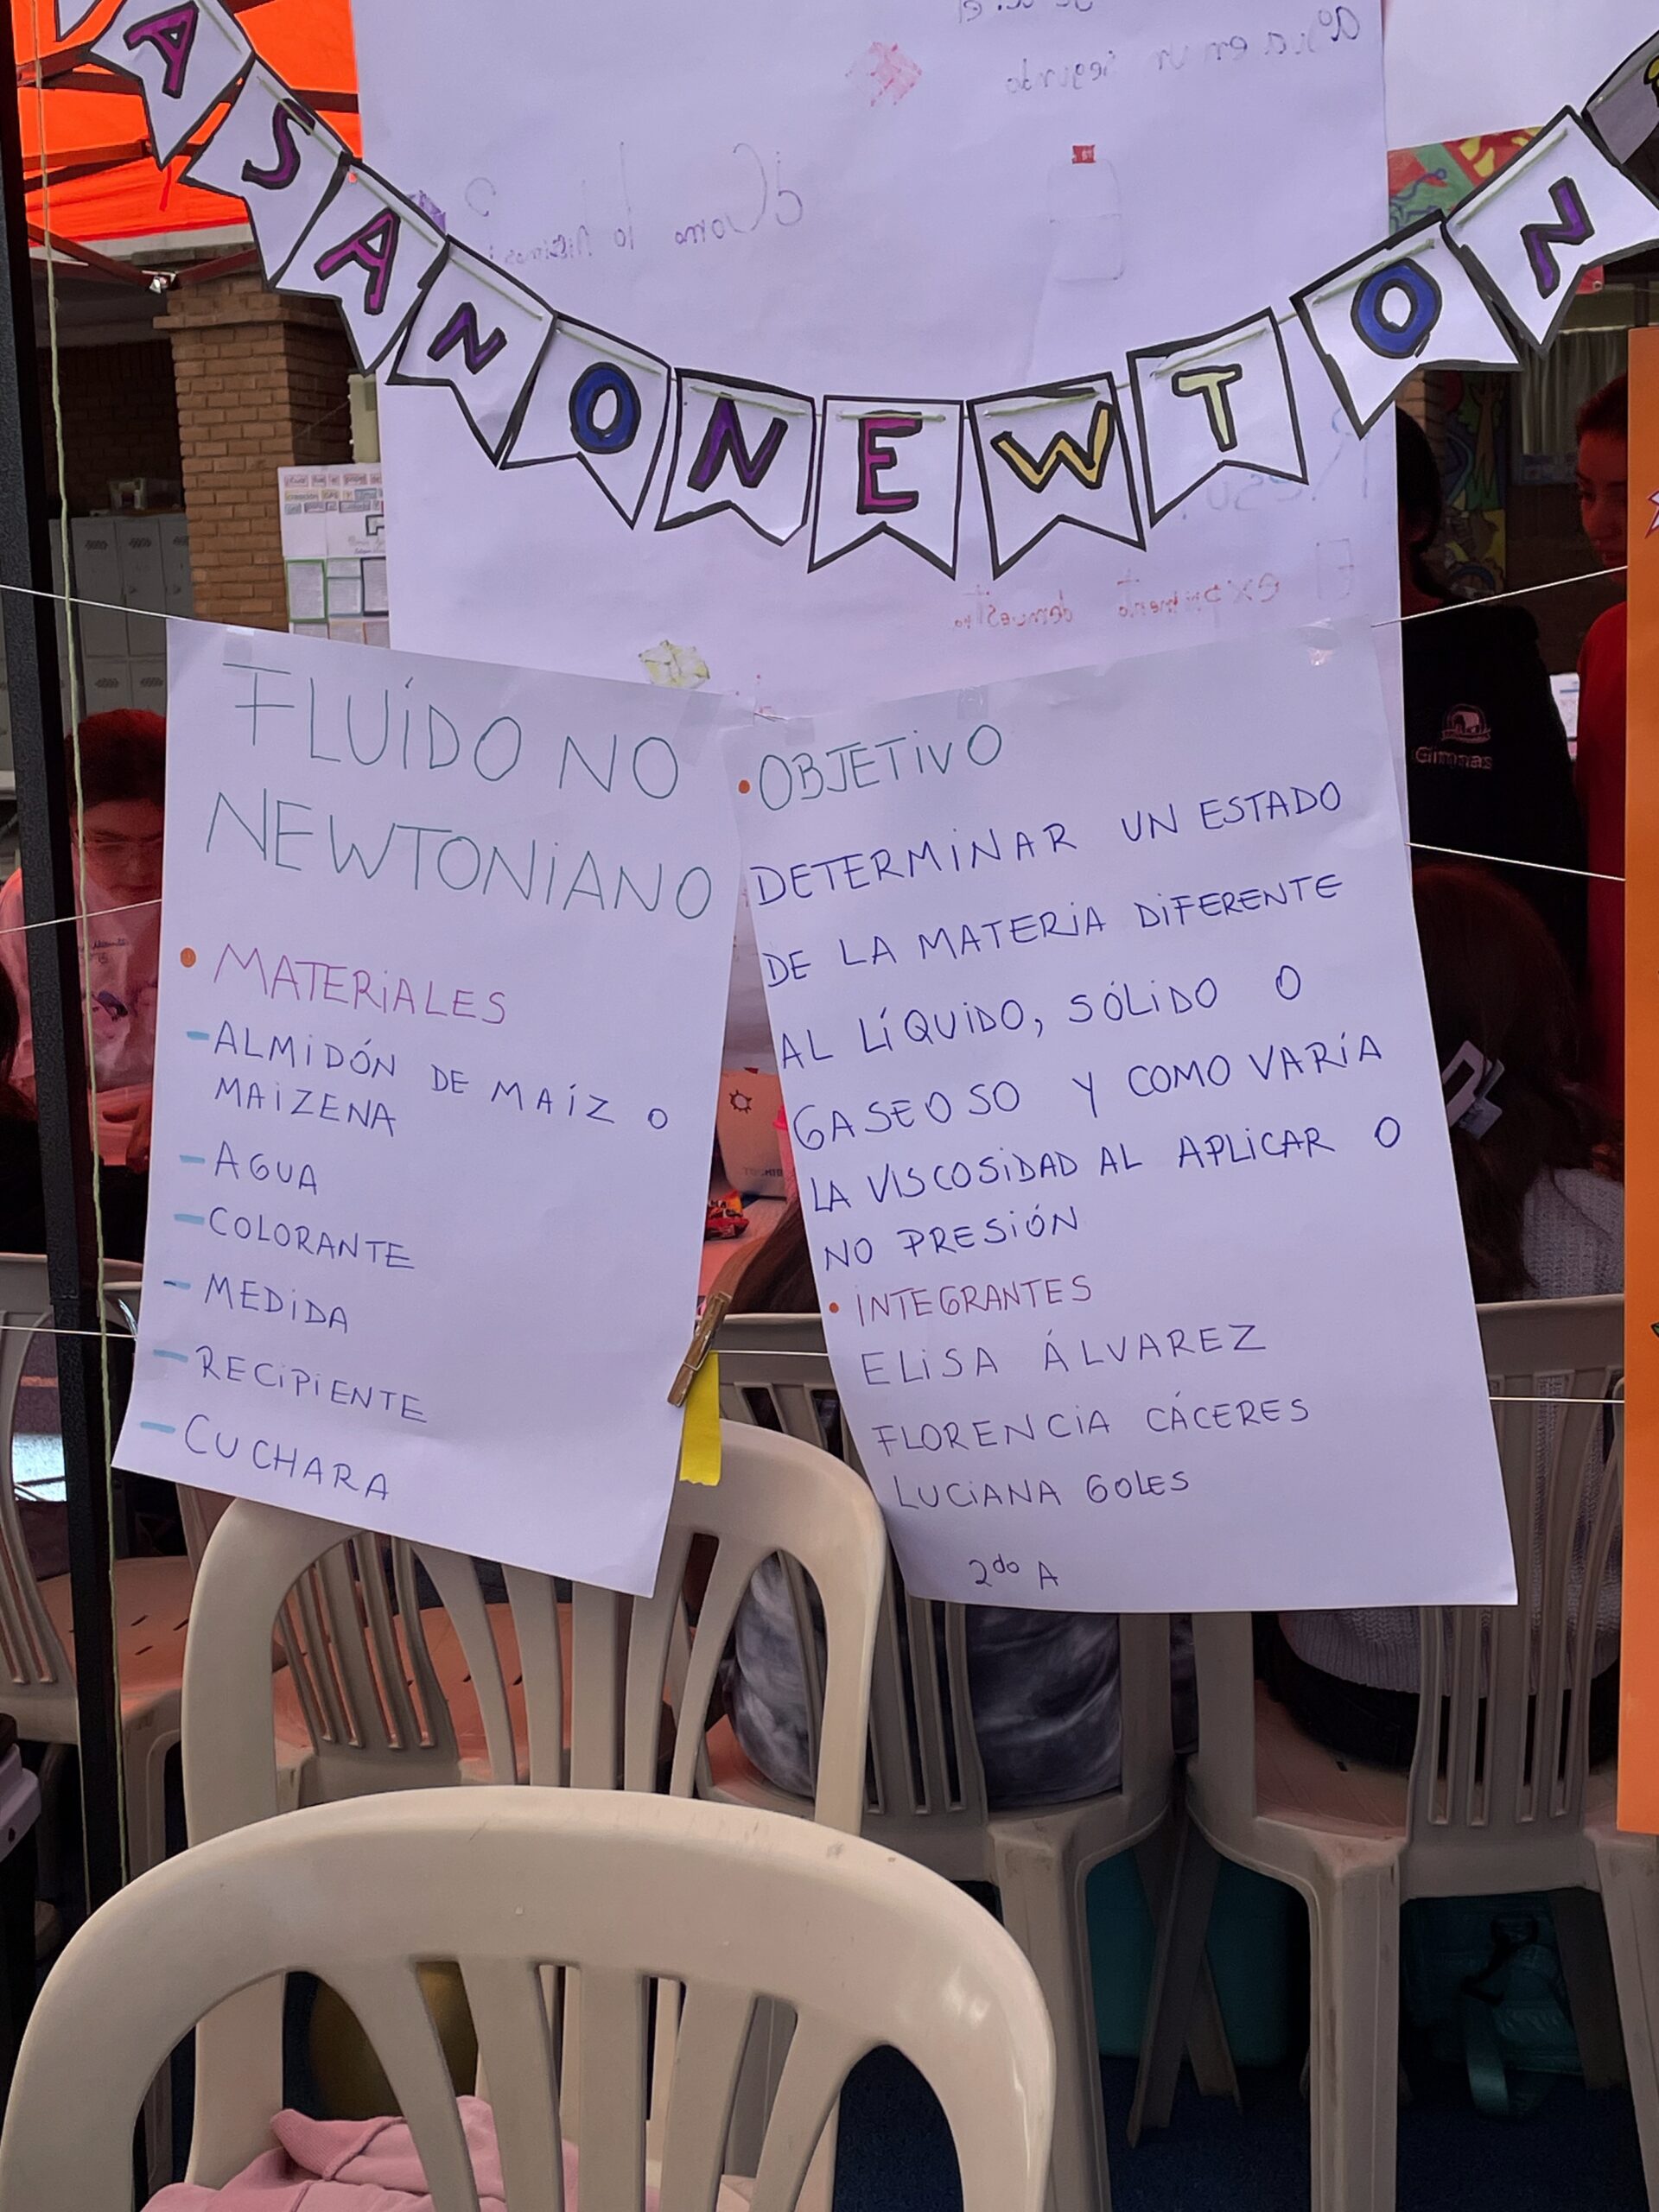 ASANONEWTON
FLUÍDO NO
NEWTONIANO
• MATERIALES
- ALMIDÓN DE MAÍZ O
MAIZENA
- AGUA
- COLORANTE
- MEDIDA
- RECIPIENTE
- CUCHARA
• OBJETIVO
DETERMINAR UN ESTADO
DE LA MATERIA DIFERENTE
AL LÍQUIDO, SÓLIDO O
GASEOSO Y COMO VARÍA
LA VISCOSIDAD AL APLICAR O
NO PRESIÓN
• INTEGRANTES
ELISA ÁLVAREZ
FLORENCIA CÁCERES
LUCIANA GOLES
2do A
en un segundo
¿Como lo hicimos?
El experimento demuestra